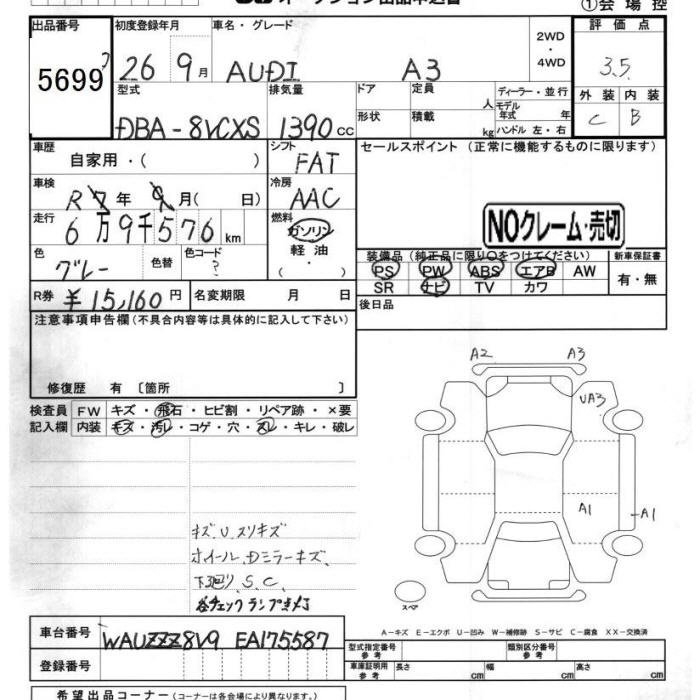 ①会場控
出品番号 初度登録年月 車名・グレード 2WD・4WD 評価点
5699 26 9月 AUDI A3 3.5
型式 排気量 ドア 定員 人 ディーラー・並行 外装 内装
モデル年式 年
DBA-8VCXS 1390cc 形状 積載 kg ハンドル 左・右 C B
車歴 シフト セールスポイント (正常に機能するものに限ります)
自家用・( ) FAT
車検 冷房
R 7年 9月(日) AAC
走行 燃料
6万9千576km ガソリン NOクレーム・売切
軽油
色 色替 色コード 装備品(純正品に限り○をつけてください) 新車保証書
グレー ? ・ PS PW ABS エアB AW 有・無
SR ナビ TV カワ
R券 ¥15,160円 名変期限 月 日 後日品
注意事項申告欄(不具合内容等は具体的に記入して下さい)
修復歴 有 〔箇所 〕
A2 A3
UA3
検査員 FW キズ・飛石・ヒビ割・リペア跡・×要
記入欄 内装 キズ・汚レ・コゲ・穴・スレ・キレ・破レ
A1 A1
キズ、U、スリキズ
ホイール、Dミラーキズ、
下廻り、S、C、
スペア
A-キズ E-エクボ U-凹み W-補修跡 S-サビ C-腐食 XX-交換済
車台番号 WAUZZZ8V9 EA175587
型式指定番号 参考 類別区分番号 参考
登録番号 車庫証明用 参考 長さ cm 幅 cm 高さ cm
希望出品コーナー(コーナーは各会場により異なります。)